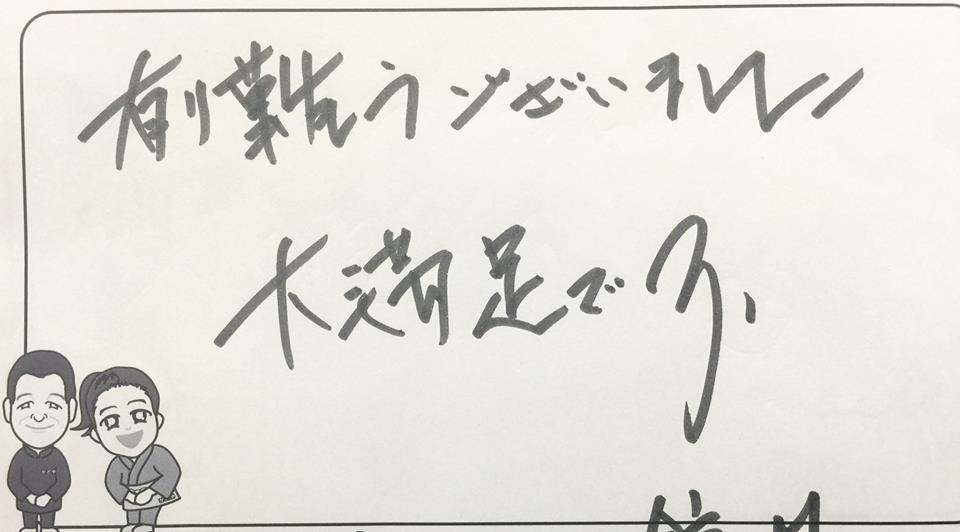 有り難うございました
大満足です、